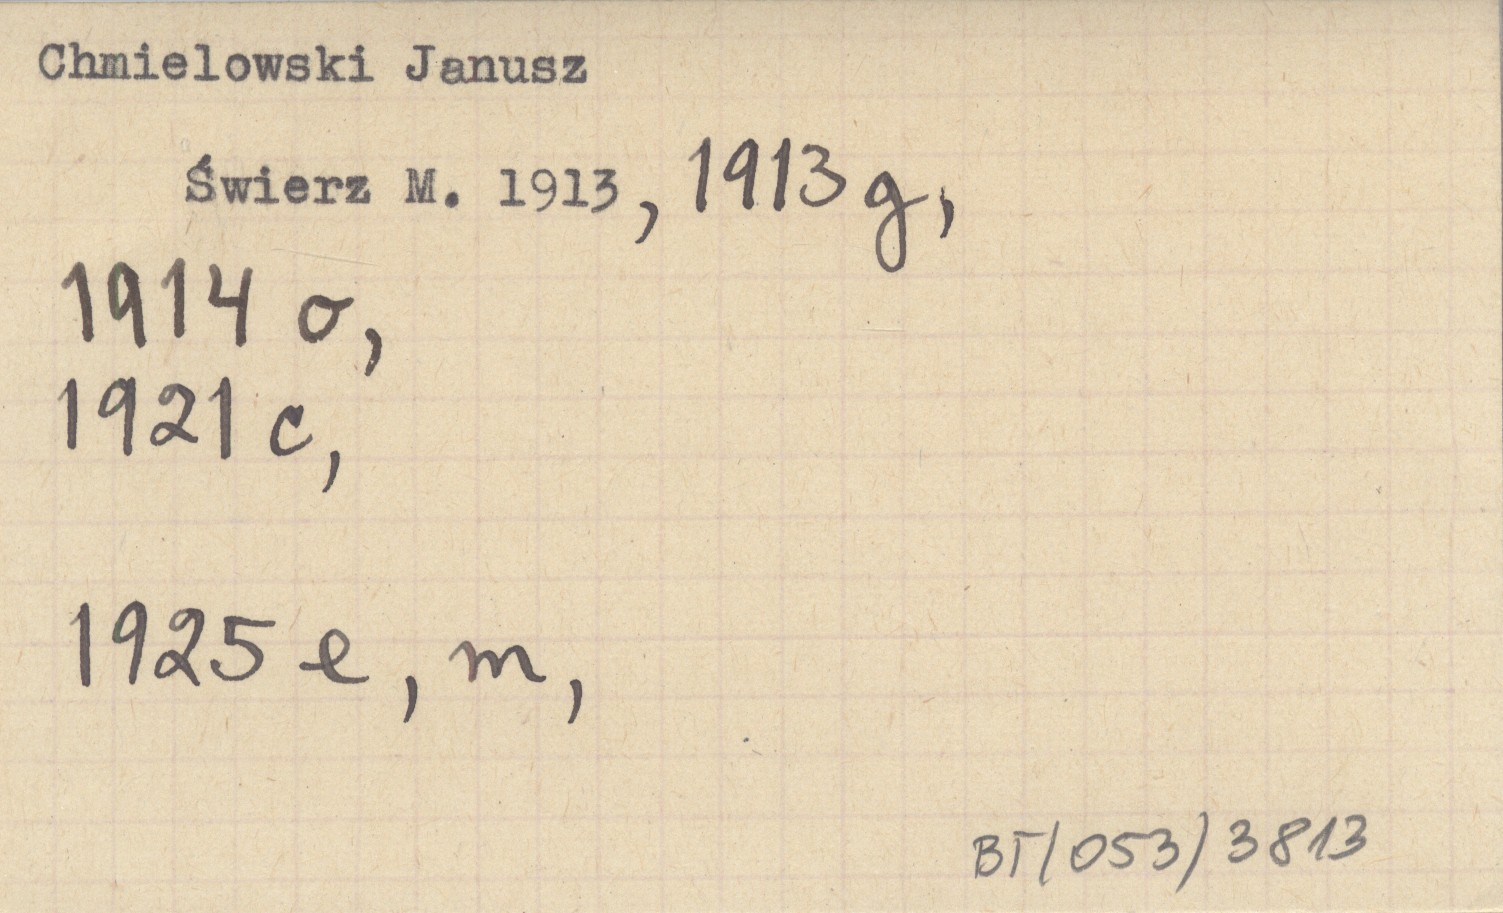 Chmielowski Janusz
Świerz M. 1913, 1913 g,
1914 o,
1921 c,
1925 e, m,
BT/053/3813